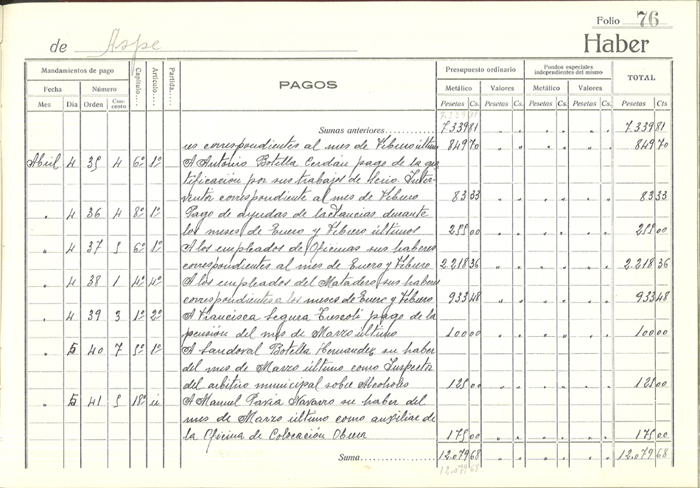 Folio 76
de Aspe Haber
Mandamientos de pago Capítulo Artículo Partida PAGOS Presupuesto ordinario Fondos especiales independientes del mismo TOTAL
Fecha Número Metálico Valores Metálico Valores
Mes Día Orden Concepto Pesetas Cs. Pesetas Cs. Pesetas Cs. Pesetas Cs. Pesetas Cts
Sumas anteriores 7.339 81 7.339 81
res correspondientes al mes de Febrero último 849 70 849 70
Abril 4 35 4 6º 1º A Antonio Botella Cerdán pago de la gra
tificación por sus trabajos de Inter
ventor correspondiente al mes de Febrero 83 33 83 33
" 4 36 4 8º 1º Pago de ayudas de lactancias durante
los meses de Enero y Febrero últimos 255 00 255 00
" 4 37 5 6º 1º A los empleados de Oficinas sus haberes
correspondientes al mes de Enero y Febrero 2.218 36 2.218 36
" 4 38 1 4º 4º A los empleados del Matadero sus haberes
correspondientes a los meses de Enero y Febrero 933 48 933 48
" 4 39 3 1º 2º A Francisca Segura pago de la
pensión del mes de Marzo último 100 00 100 00
" 5 40 7 5º 1º A Sandoval Botella Hernandez su haber
del mes de Marzo último como Inspector
del arbitrio municipal sobre Alcoholes 125 00 125 00
" 5 41 5 18º A Manuel Pavia Navarro su haber del
mes de Marzo último como auxiliar de
la Oficina de Colocación Obrera 175 00 175 00
Suma 12.079 68 12.079 68
12.079 68